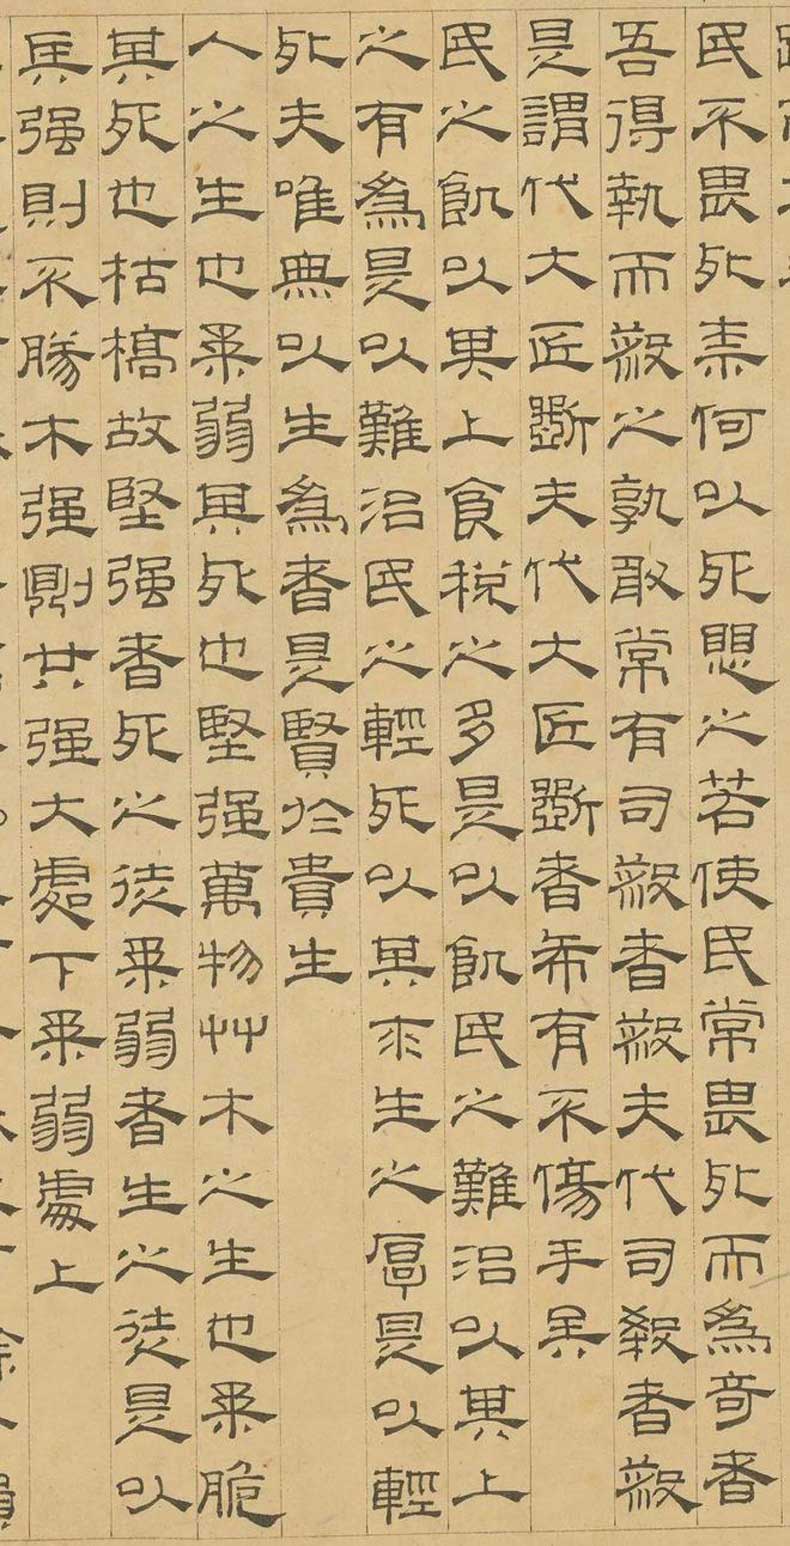 民不畏死柰何以死愳之若使民常畏死而為奇者
吾得執而殺之孰敢常有司殺者殺夫代司殺者殺
是謂代大匠斲夫代大匠斲者希有不傷手矣
民之飢以其上食稅之多是以飢民之難治以其上
之有為是以難治民之輕死以其求生之厚是以輕
死夫唯無以生為者是賢於貴生
人之生也柔弱其死也堅强萬物艸木之生也柔脆
其死也枯槁故堅强者死之徒柔弱者生之徒是以
兵强則不勝木强則共强大處下柔弱處上